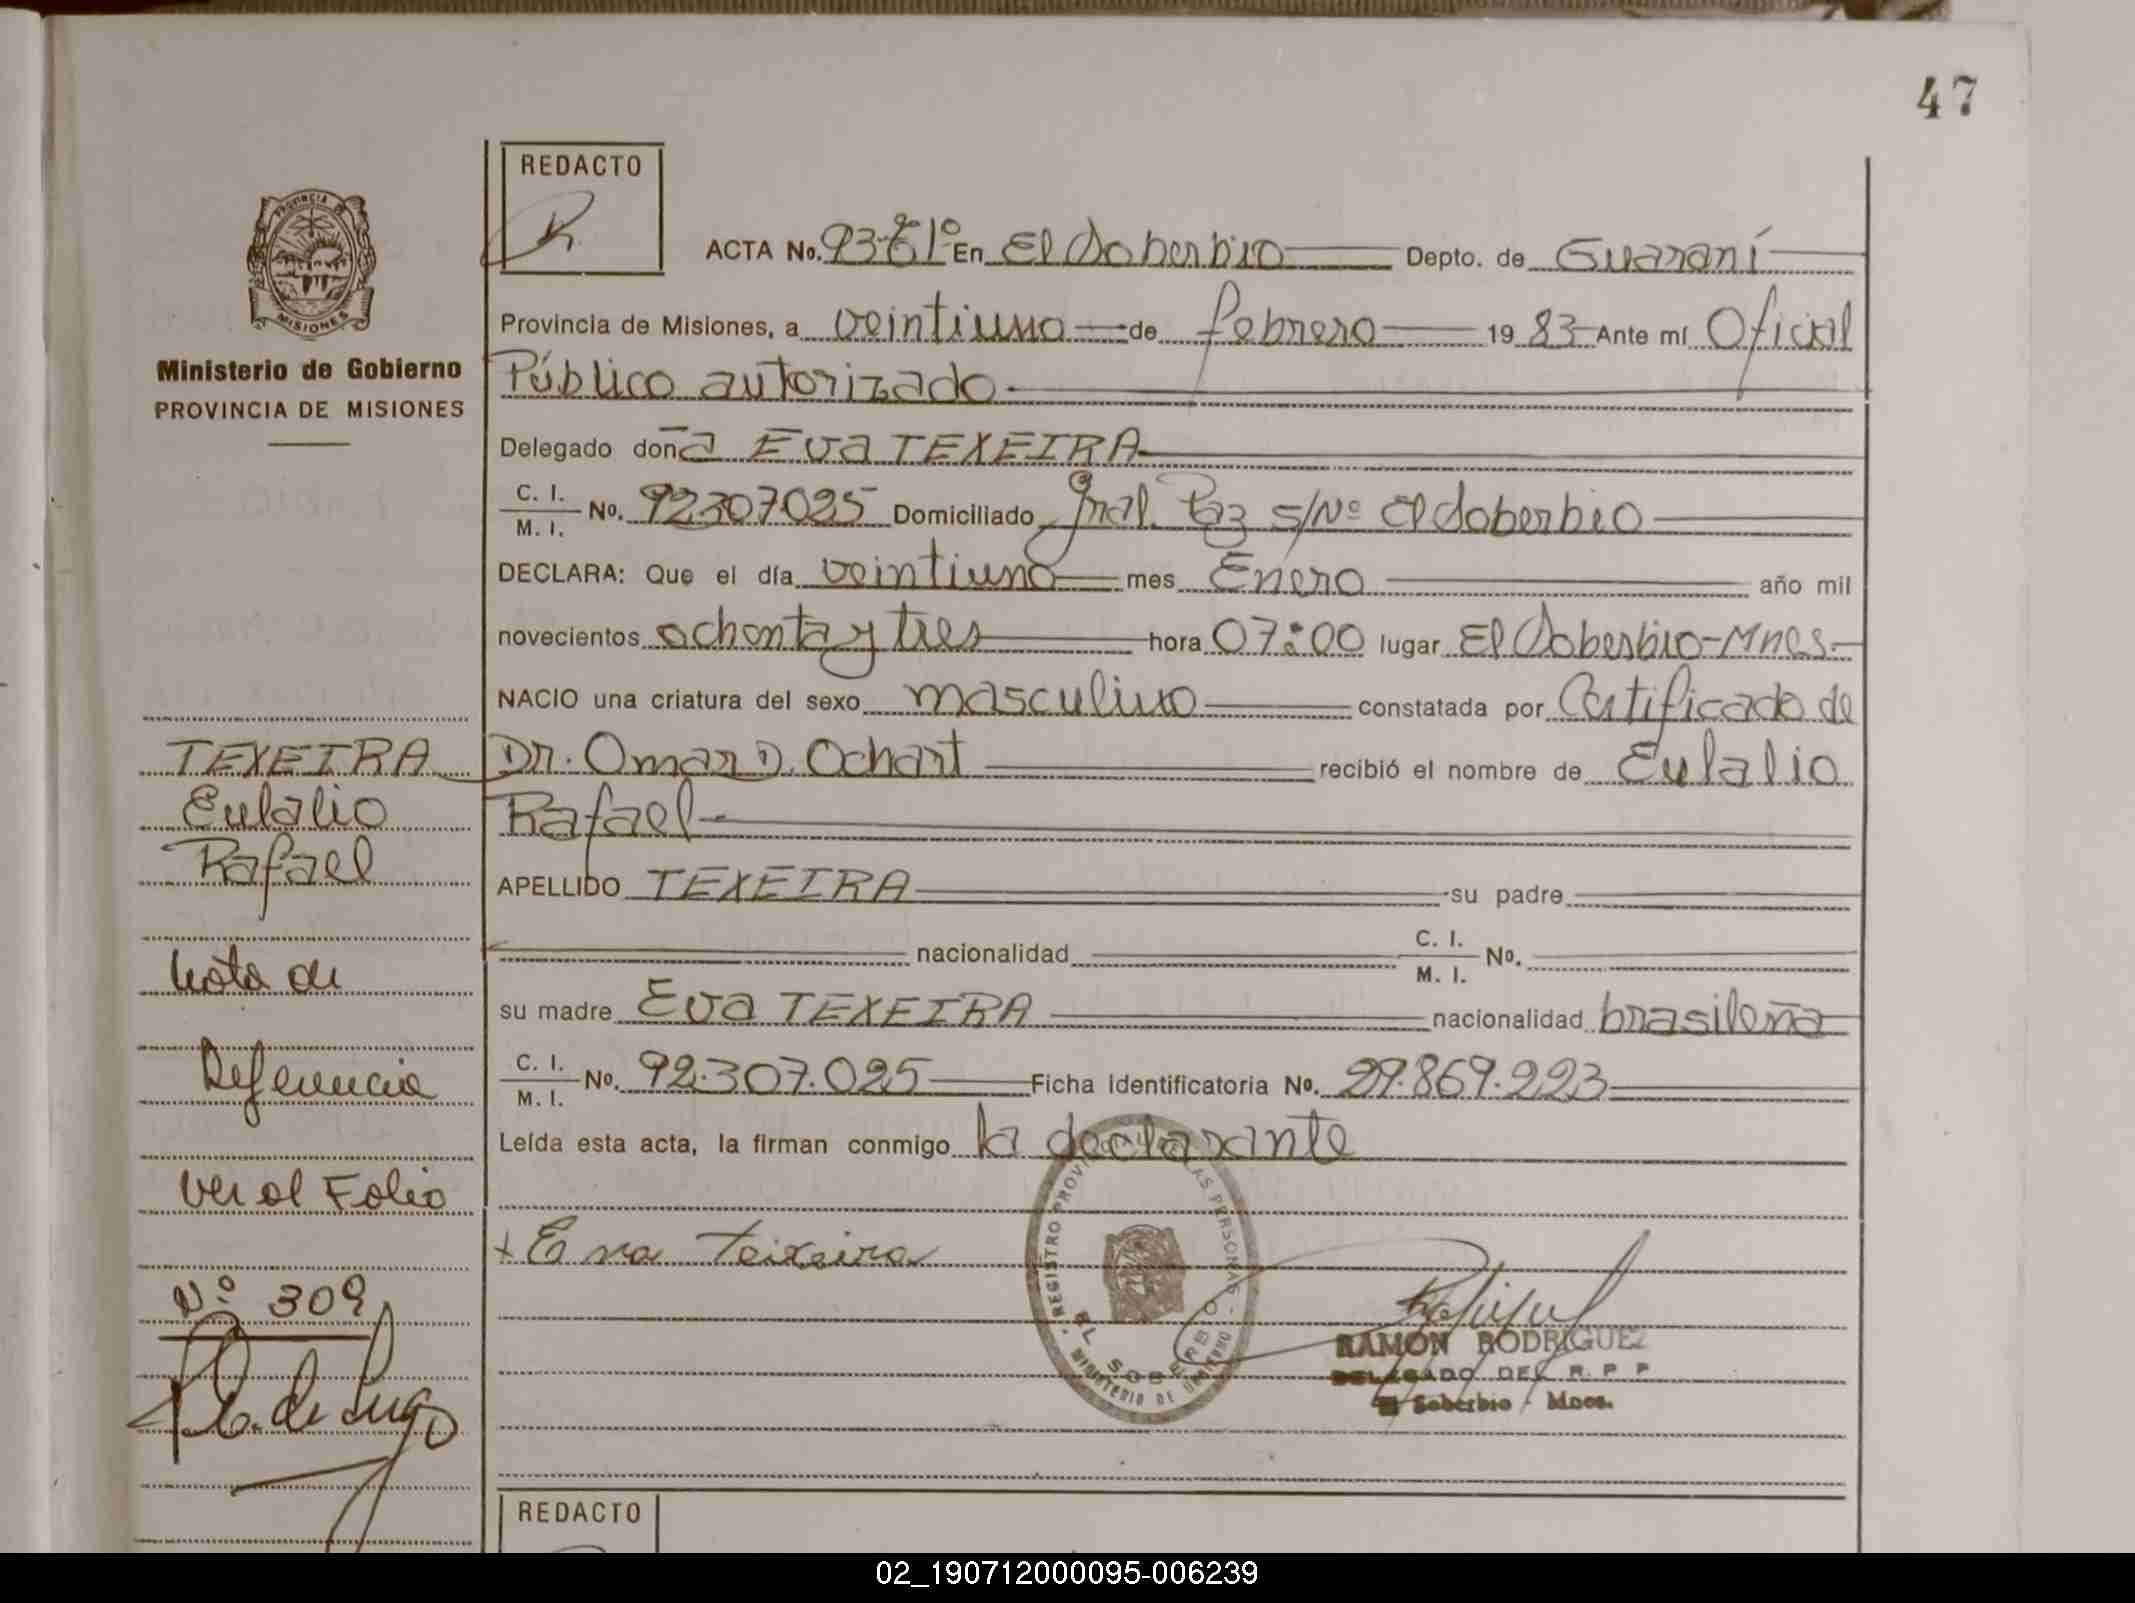 47
REDACTO
ACTA No. 93-Tº1º En El Soberbio Depto. de Guaraní
PROVINCIA DE
MISIONES
Ministerio de Gobierno
PROVINCIA DE MISIONES
Provincia de Misiones, a veintiuno de febrero 19 83 Ante mí Oficial
Público autorizado
Delegado doña Eva TEXEIRA
C. I.
M. I. No. 92307025 Domiciliado Gral. Paz S/Nº El Soberbio
DECLARA: Que el día veintiuno mes Enero año mil
novecientos ochenta y tres hora 07:00 lugar El Soberbio-Mnes.
NACIO una criatura del sexo masculino constatada por Certificado de
Dr. Omar D. Ochart recibió el nombre de Eulalio
Rafael
APELLIDO TEXEIRA su padre
nacionalidad C. I.
M. I. No.
su madre Eva TEXEIRA nacionalidad brasileña
C. I.
M. I. No. 92.307.025 Ficha Identificatoria No. 29.869.223
Leída esta acta, la firman conmigo la declarante
+ Eva Teixeira
TEXEIRA
Eulalio
Rafael
Nota de
Referencia
Ver al Folio
Nº 309
REGISTRO PERSONAS
EL SOBERBIO
MINISTERIO DE GOBIERNO
RAMON RODRIGUEZ
DELEGADO DEL R. P P
El Soberbio - Mnes.
REDACTO
02_190712000095-006239